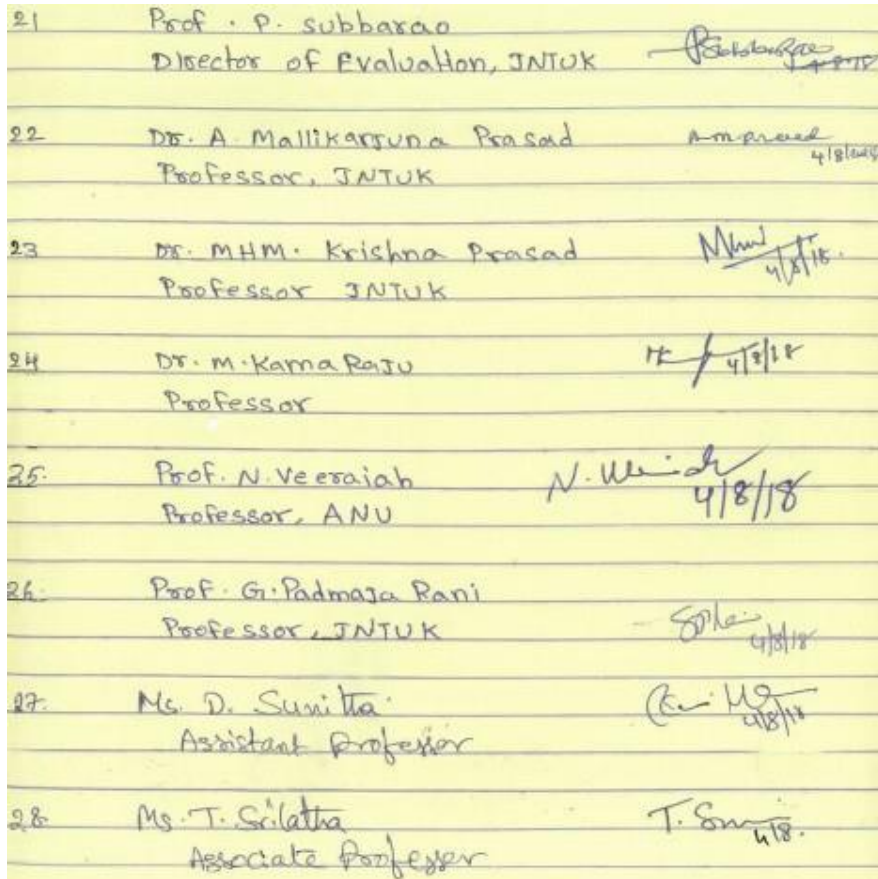 21 Prof. P. Subbarao
Director of Evaluation, JNTUK
4-8-18
22 Dr. A. Mallikarjuna Prasad Amprasad
Professor, JNTUK 4/8/2018
23 Dr. MHM. Krishna Prasad
Professor JNTUK 4/8/18.
24 Dr. M. Kama Raju 4/8/18
Professor
25. Prof. N. Veeraiah N.
Professor, ANU 4/8/18
26. Prof. G. Padmaja Rani
Professor, JNTUK 4/8/18
27. Ms. D. Sunitha
Assistant Professor 4/8/18
28. Ms. T. Srilatha T. 4/8.
Associate Professor